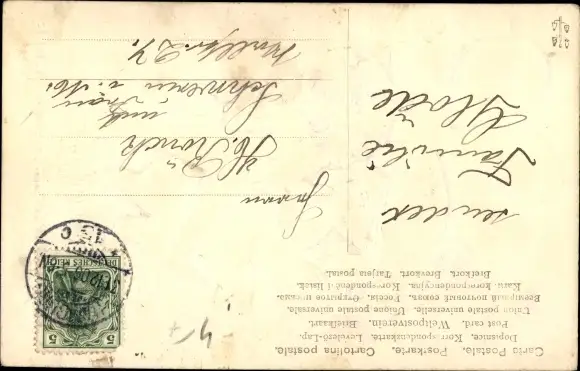 Carte Postale. Postkarte. Cartolina postale.
Dopisnice, Korrespondenzkarte. Levelező-Lap.
Post card. Weltpostverein. Briefkaart.
Union postale universelle. Unione postale universale.
Всемірный почтовый союзъ. Россія. Открытое письмо.
Karta korespondencyjna, Korespondenčni listek.
Brefkort. Brevkort. Tarjeta postal.
DEUTSCHES REICH
5
5
sendet
Familie
Glode
Herrn
H. Rönck
und Frau
Schwerin i. M.